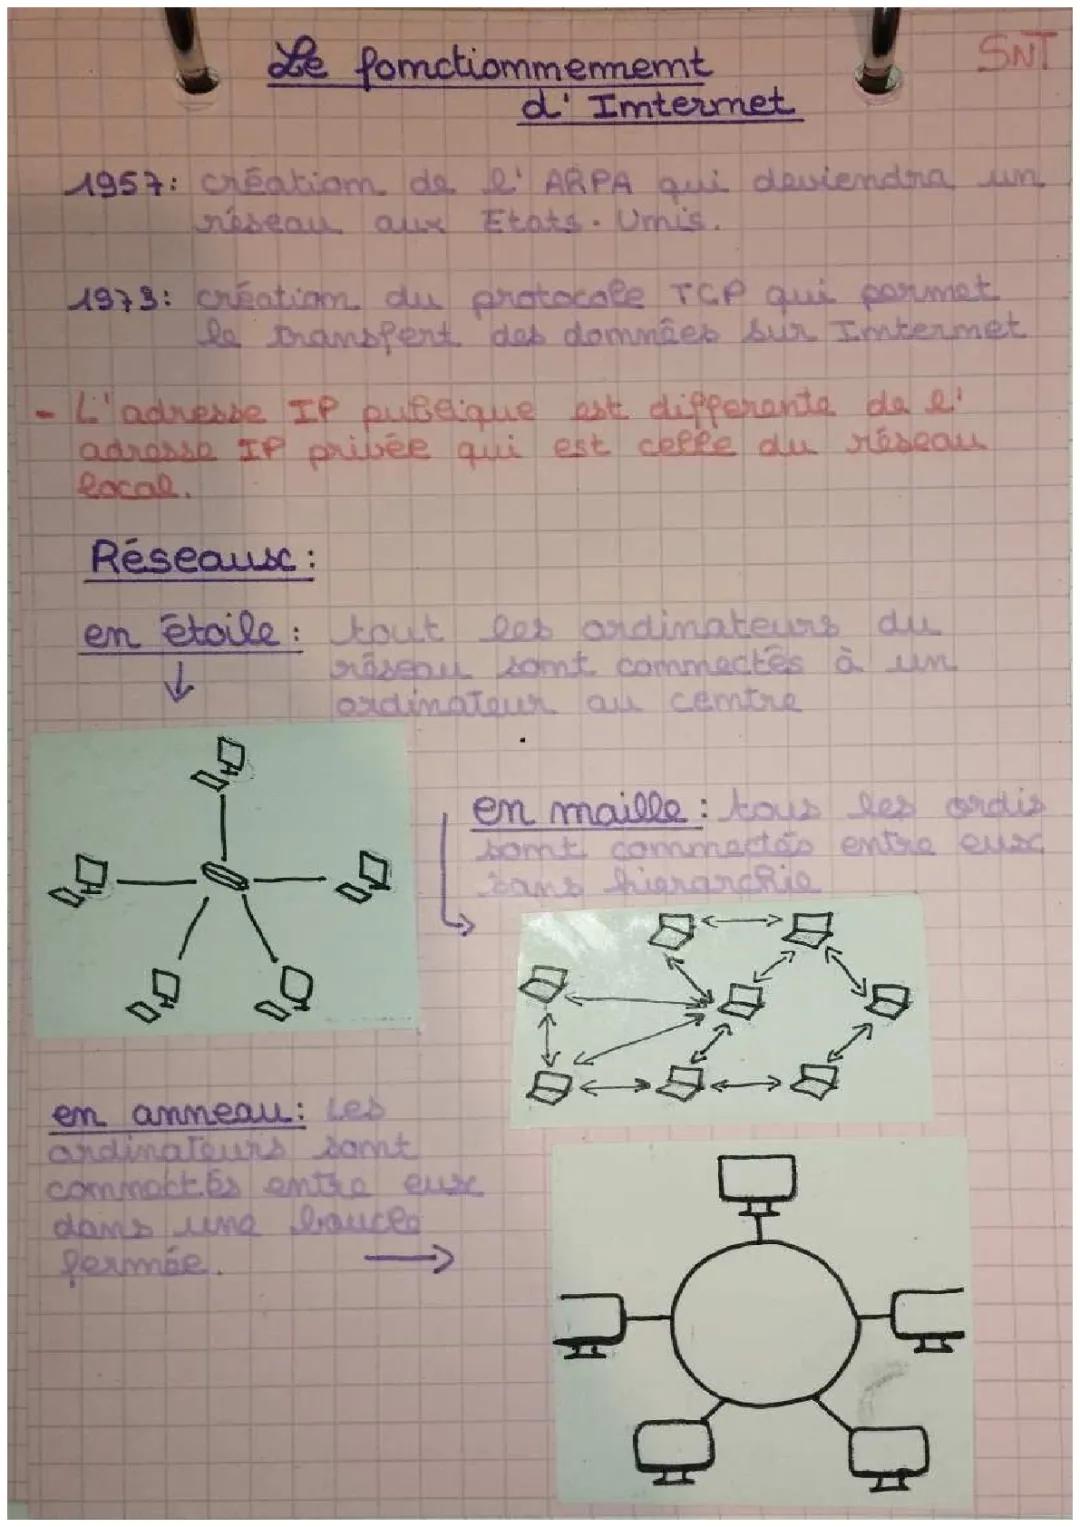 SNT
Le fonctionnement
d' Internet
1957: création de l' ARPA qui deviendra un
réseau aux Etats-Unis.
1973: création du protocole TCP qui permet
le transfert des données sur Internet
- L'adresse IP publique est differente de l'
adresse IP privée qui est celle du réseau
local.
Réseaux :
en étoile : tout les ordinateurs du
réseau sont connectés à un
ordinateur au centre
en maille : tous les ordis
sont connectés entre eux
sans hierarchie
en anneau : Les
ordinateurs sont
connectés entre eux
dans une boucle
fermée.